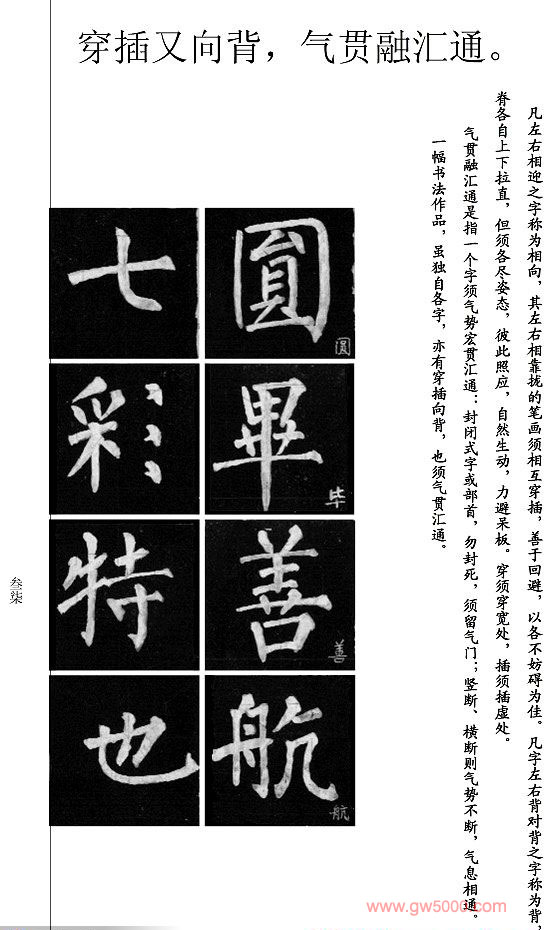 穿插又向背，气贯融汇通。
凡左右相迎之字称为相向，其左右相靠拢的笔画须相互穿插，善于回避，以各不妨碍为佳。凡字左右背对背之字称为背，
脊各自上下拉直，但须各尽姿态，彼此照应，自然生动，力避呆板。穿须穿宽处，插须插虚处。
气贯融汇通是指一个字须气势宏贯汇通：封闭式字或部首，勿封死，须留气门；竖断、横断则气势不断，气息相通。
一幅书法作品，虽独自各字，亦有穿插向背，也须气贯汇通。
圓
圆
畢
毕
善
善
航
航
七
彩
特
也
叁柒
www.gw5000.com